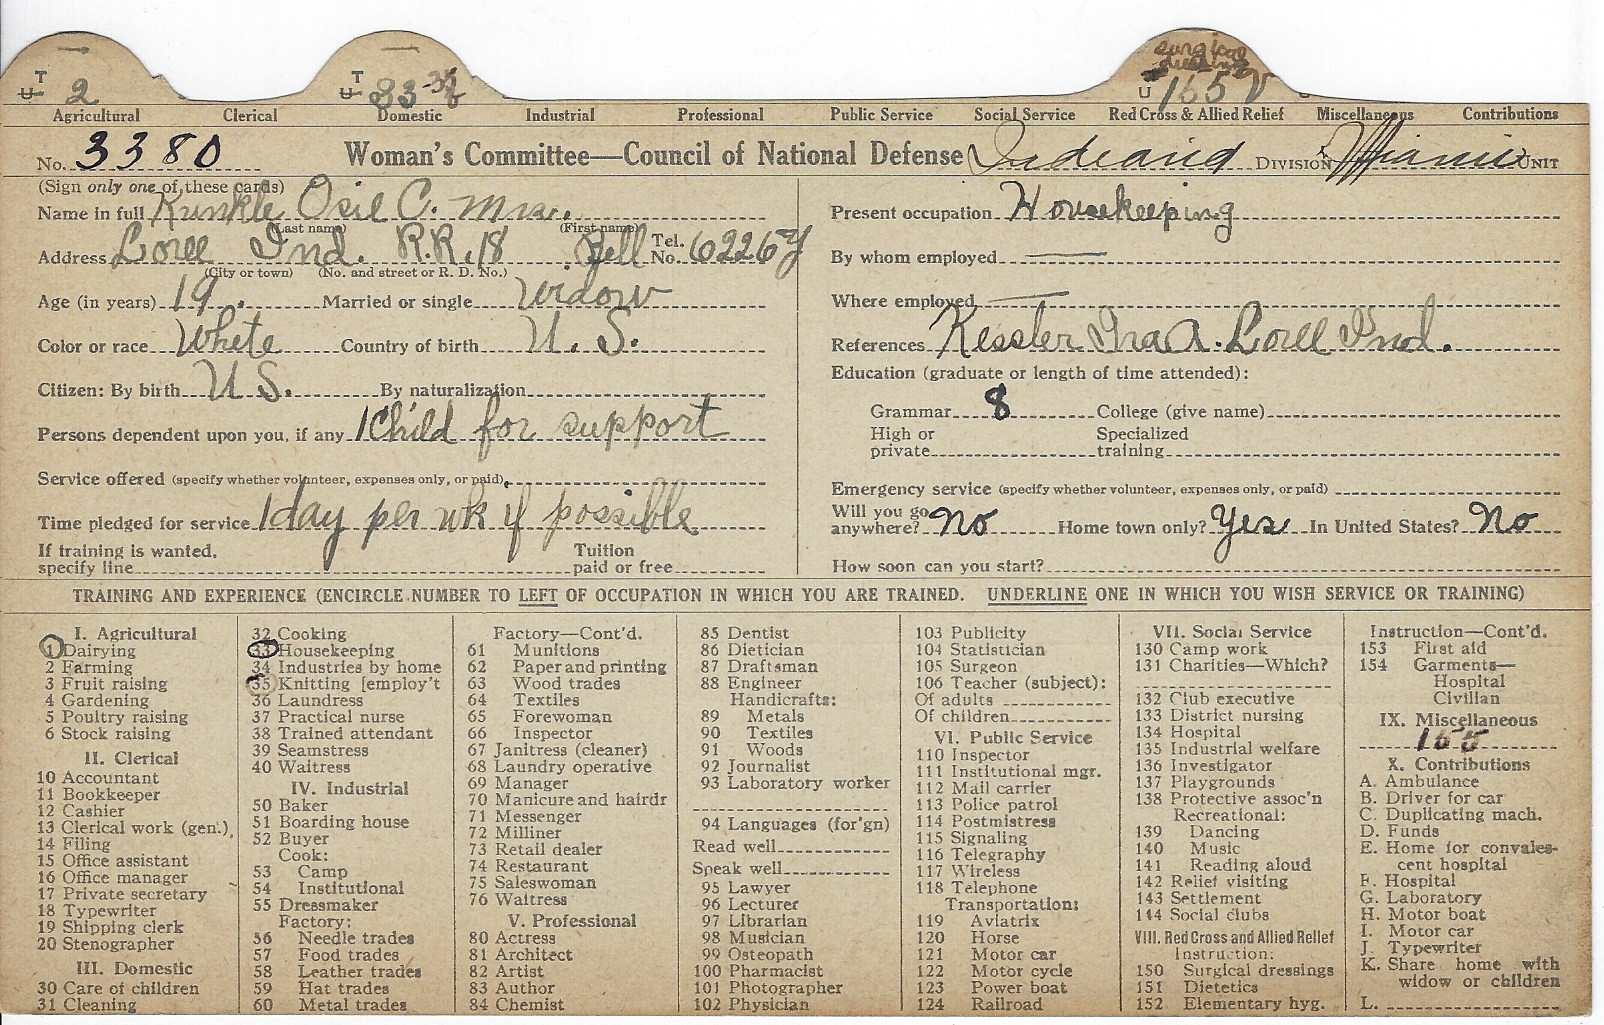 T
U 2
T
U 33-35
surgical
dressing
U 165 V
Agricultural Clerical Domestic Industrial Professional Public Service Social Service Red Cross & Allied Relief Miscellaneous Contributions
No. 3380 Woman's Committee—Council of National Defense Indiana DIVISION Miami UNIT
(Sign only one of these cards)
Name in full Kunkle Osie C. Mrs.
(Last name) (First name)
Address Loree Ind. R.R. 18 Bell Tel. No. 6226 Y
(City or town) (No. and street or R. D. No.)
Age (in years) 19. Married or single Widow
Color or race White Country of birth U. S.
Citizen: By birth U S. By naturalization
Persons dependent upon you, if any 1 Child for support
Service offered (specify whether volunteer, expenses only, or paid)
Time pledged for service 1 day per wk if possible
If training is wanted, specify line Tuition paid or free
Present occupation Housekeeping
By whom employed —
Where employed —
References Kessler Ira A. Loree Ind.
Education (graduate or length of time attended):
Grammar 8 College (give name)
High or private Specialized training
Emergency service (specify whether volunteer, expenses only, or paid)
Will you go anywhere? No Home town only? Yes In United States? No
How soon can you start?
TRAINING AND EXPERIENCE (ENCIRCLE NUMBER TO LEFT OF OCCUPATION IN WHICH YOU ARE TRAINED. UNDERLINE ONE IN WHICH YOU WISH SERVICE OR TRAINING)
I. Agricultural
1 Dairying
2 Farming
3 Fruit raising
4 Gardening
5 Poultry raising
6 Stock raising
II. Clerical
10 Accountant
11 Bookkeeper
12 Cashier
13 Clerical work (gen.)
14 Filing
15 Office assistant
16 Office manager
17 Private secretary
18 Typewriter
19 Shipping clerk
20 Stenographer
III. Domestic
30 Care of children
31 Cleaning
32 Cooking
33 Housekeeping
34 Industries by home
35 Knitting [employ't
36 Laundress
37 Practical nurse
38 Trained attendant
39 Seamstress
40 Waitress
IV. Industrial
50 Baker
51 Boarding house
52 Buyer
Cook:
53 Camp
54 Institutional
55 Dressmaker
Factory:
56 Needle trades
57 Food trades
58 Leather trades
59 Hat trades
60 Metal trades
Factory—Cont'd.
61 Munitions
62 Paper and printing
63 Wood trades
64 Textiles
65 Forewoman
66 Inspector
67 Janitress (cleaner)
68 Laundry operative
69 Manager
70 Manicure and hairdr
71 Messenger
72 Milliner
73 Retail dealer
74 Restaurant
75 Saleswoman
76 Waitress
V. Professional
80 Actress
81 Architect
82 Artist
83 Author
84 Chemist
85 Dentist
86 Dietician
87 Draftsman
88 Engineer
Handicrafts:
89 Metals
90 Textiles
91 Woods
92 Journalist
93 Laboratory worker
94 Languages (for'gn)
Read well
Speak well
95 Lawyer
96 Lecturer
97 Librarian
98 Musician
99 Osteopath
100 Pharmacist
101 Photographer
102 Physician
103 Publicity
104 Statistician
105 Surgeon
106 Teacher (subject):
Of adults
Of children
VI. Public Service
110 Inspector
111 Institutional mgr.
112 Mail carrier
113 Police patrol
114 Postmistress
115 Signaling
116 Telegraphy
117 Wireless
118 Telephone
Transportation:
119 Aviatrix
120 Horse
121 Motor car
122 Motor cycle
123 Power boat
124 Railroad
VII. Social Service
130 Camp work
131 Charities—Which?
132 Club executive
133 District nursing
134 Hospital
135 Industrial welfare
136 Investigator
137 Playgrounds
138 Protective assoc'n
Recreational:
139 Dancing
140 Music
141 Reading aloud
142 Relief visiting
143 Settlement
144 Social clubs
VIII. Red Cross and Allied Relief
Instruction:
150 Surgical dressings
151 Dietetics
152 Elementary hyg.
Instruction—Cont'd.
153 First aid
154 Garments—
Hospital
Civilian
IX. Miscellaneous
155
X. Contributions
A. Ambulance
B. Driver for car
C. Duplicating mach.
D. Funds
E. Home for convales-
cent hospital
F. Hospital
G. Laboratory
H. Motor boat
I. Motor car
J. Typewriter
K. Share home with
widow or children
L.